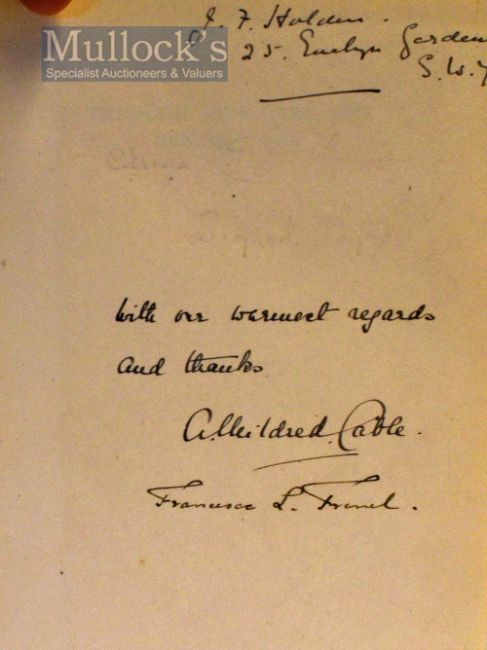 Mullock's
Specialist Auctioneers & Valuers
J. F. Holden.
25. Evelyn Garden
S.W.7
With our warmest regards
and thanks
A. Mildred. Cable.
Francesca L. French.